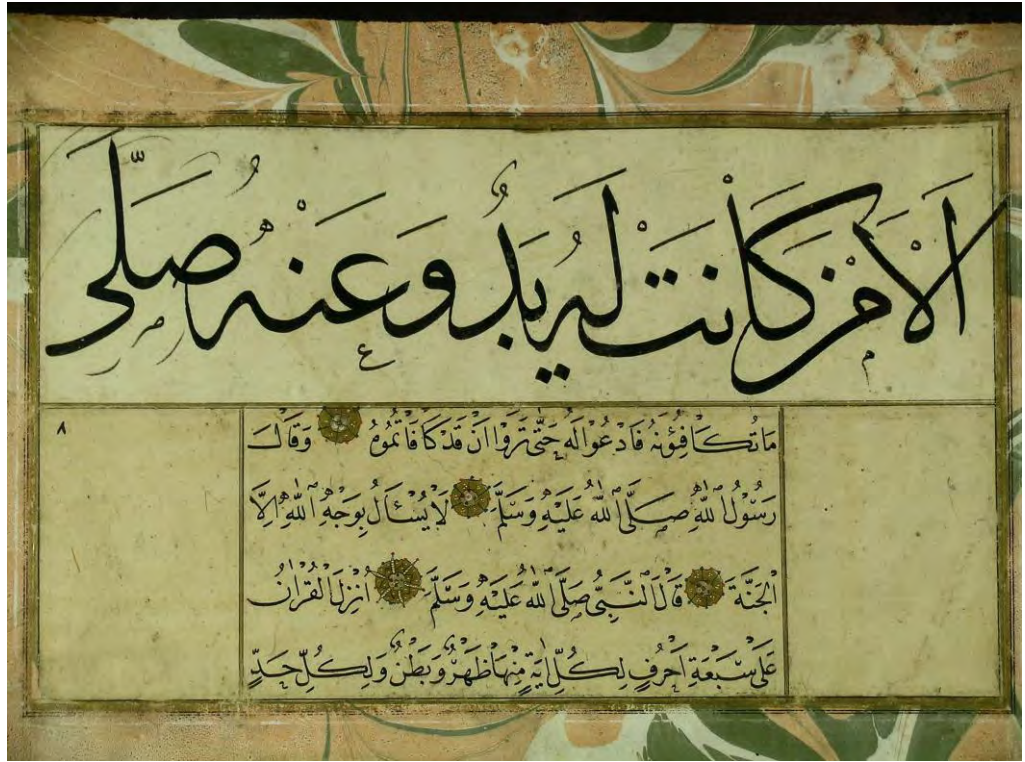 اَلَا مَنْ كَانَتْ لَهُ يَدٌ وَعَنْهُ صَلَّى
مَا تُكَافِؤُنَهُ فَادْعُوا لَهُ حَتَّى تَرَوْا اَنْ قَدْ كَافَاْتُمُوهُ وَقَالَ
رَسُولُ اللّٰهِ صَلَّى اللّٰهُ عَلَيْهِ وَسَلَّمَ لَا يُسْـَٔالُ بِوَجْهِ اللّٰهِ اِلَّا
الْجَنَّةَ قَالَ النَّبِىُّ صَلَّى اللّٰهُ عَلَيْهِ وَسَلَّمَ اُنْزِلَ الْقُرْاٰنُ
عَلٰى سَبْعَةِ اَحْرُفٍ لِكُلِّ اٰيَةٍ مِنْهَا ظَهْرٌ وَبَطْنٌ وَلِكُلِّ حَدٍّ
٨